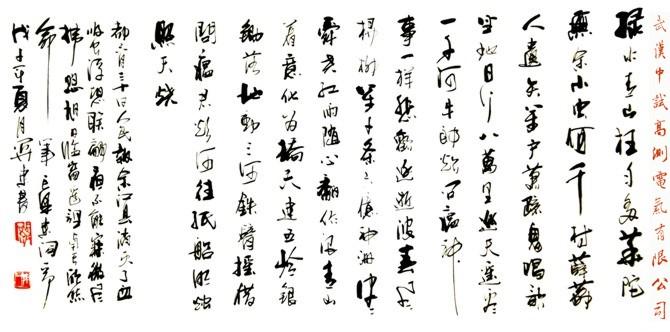 武漢中試高測電氣有限公司
綠水青山枉自多華佗
無奈小虫何千村薜荔
人遺矢萬戶蕭疏鬼唱歌
坐地日行八萬里巡天遙看
一千河牛郎欲問瘟神
事一樣悲歡逐逝波春風
楊柳萬千條六億神州盡
舜堯紅雨隨心翻作浪青山
着意化為橋天連五岭銀
鋤落地動三河鐵臂搖借
問瘟君欲何往紙船明燭
照天燒
讀六月三十日人民報余江县消灭了血
吸虫浮想联翩夜不能寐微風
拂煦旭日临窗遥望南天欣然
命筆
戊子年夏月